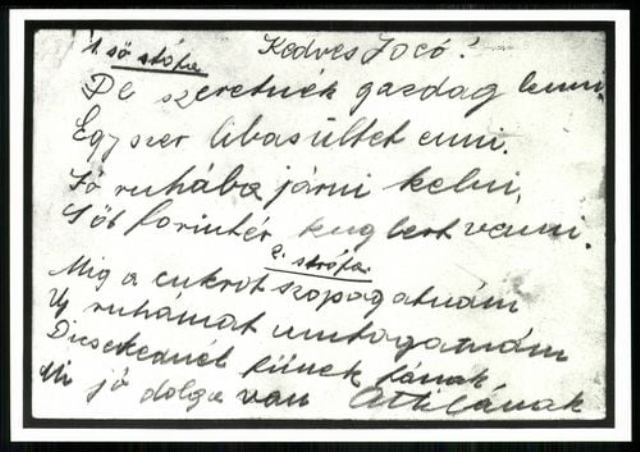 1. ső stófa
Kedves Jocó!
De szeretnék gazdag lenni,
Egyszer libasültet enni.
Jó ruhába járni kelni,
S öt forintér kuglert venni.
2. strófa.
Mig a cukrot szopogatnám
Uj ruhámat mutogatnám
Dicsekednél fünek fának
Mi jó dolga van Attilának